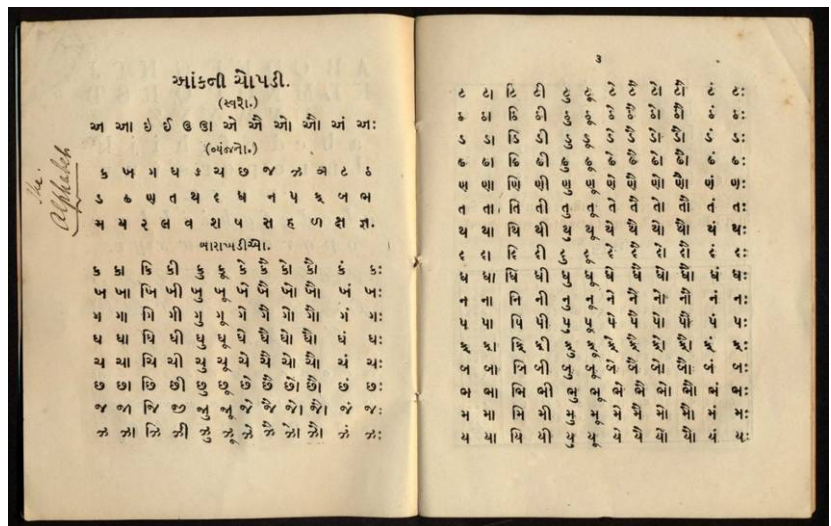 The.
Alphabet
આંકની ચોપડી.
(સ્વરો.)
અ આ ઇ ઈ ઉ ઊ એ ઐ ઓ ઔ અં અઃ
(વ્યંજનો.)
ક ખ ગ ઘ ઙ ચ છ જ ઝ ઞ ટ ઠ
ડ ઢ ણ ત થ દ ધ ન પ ફ બ ભ
મ ય ર લ વ શ ષ સ હ ળ ક્ષ જ્ઞ.
બારાખડીઓ.
ક કા કિ કી કુ કૂ કે કૈ કો કૌ કં કઃ
ખ ખા ખિ ખી ખુ ખૂ ખે ખૈ ખો ખૌ ખં ખઃ
ગ ગા ગિ ગી ગુ ગૂ ગે ગૈ ગો ગૌ ગં ગઃ
ઘ ઘા ઘિ ઘી ઘુ ઘૂ ઘે ઘૈ ઘો ઘૌ ઘં ઘઃ
ચ ચા ચિ ચી ચુ ચૂ ચે ચૈ ચો ચૌ ચં ચઃ
છ છા છિ છી છુ છૂ છે છૈ છો છૌ છં છઃ
જ જા જિ જી જુ જૂ જે જૈ જો જૌ જં જઃ
ઝ ઝા ઝિ ઝી ઝુ ઝૂ ઝે ઝૈ ઝો ઝૌ ઝં ઝઃ
૩
ટ ટા ટિ ટી ટુ ટૂ ટે ટૈ ટો ટૌ ટં ટઃ
ઠ ઠા ઠિ ઠી ઠુ ઠૂ ઠે ઠૈ ઠો ઠૌ ઠં ઠઃ
ડ ડા ડિ ડી ડુ ડૂ ડે ડૈ ડો ડૌ ડં ડઃ
ઢ ઢા ઢિ ઢી ઢુ ઢૂ ઢે ઢૈ ઢો ઢૌ ઢં ઢઃ
ણ ણા ણિ ણી ણુ ણૂ ણે ણૈ ણો ણૌ ણં ણઃ
ત તા તિ તી તુ તૂ તે તૈ તો તૌ તં તઃ
થ થા થિ થી થુ થૂ થે થૈ થો થૌ થં થઃ
દ દા દિ દી દુ દૂ દે દૈ દો દૌ દં દઃ
ધ ધા ધિ ધી ધુ ધૂ ધે ધૈ ધો ધૌ ધં ધઃ
ન ના નિ ની નુ નૂ ને નૈ નો નૌ નં નઃ
પ પા પિ પી પુ પૂ પે પૈ પો પૌ પં પઃ
ફ ફા ફિ ફી ફુ ફૂ ફે ફૈ ફો ફૌ ફં ફઃ
બ બા બિ બી બુ બૂ બે બૈ બો બૌ બં બઃ
ભ ભા ભિ ભી ભુ ભૂ ભે ભૈ ભો ભૌ ભં ભઃ
મ મા મિ મી મુ મૂ મે મૈ મો મૌ મં મઃ
ય યા યિ યી યુ યૂ યે યૈ યો યૌ યં યઃ